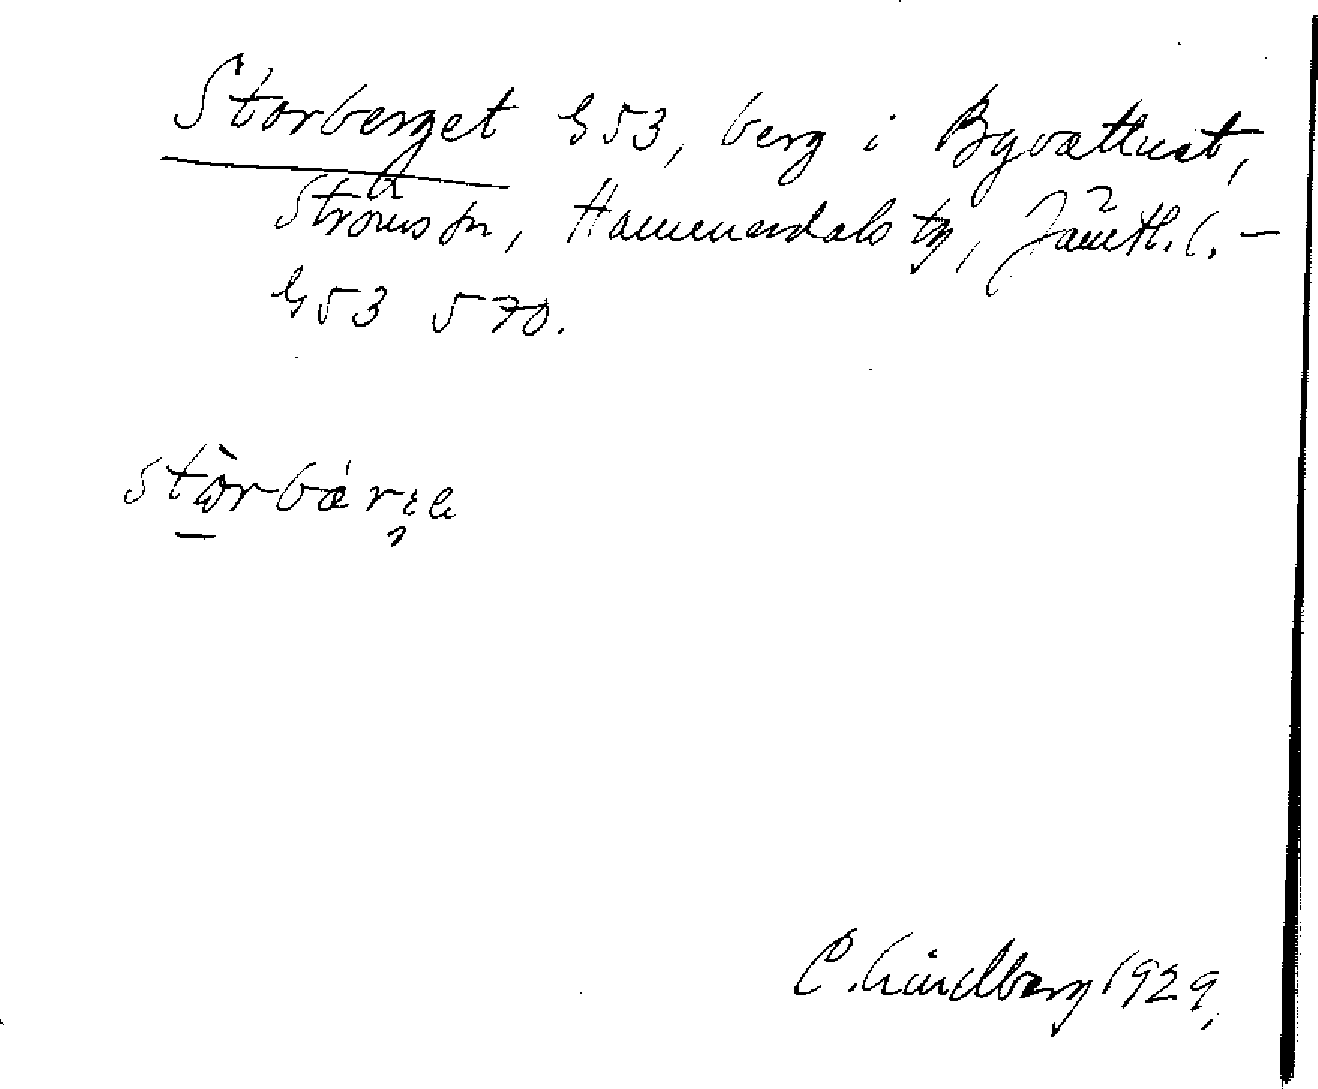 Storberget G53, berg i Bgvattnet,
Ströms sn, Hammerdals tg, Jämtl. l. –
G53 570.
stòrbǽr
C. Lindberg 1929.